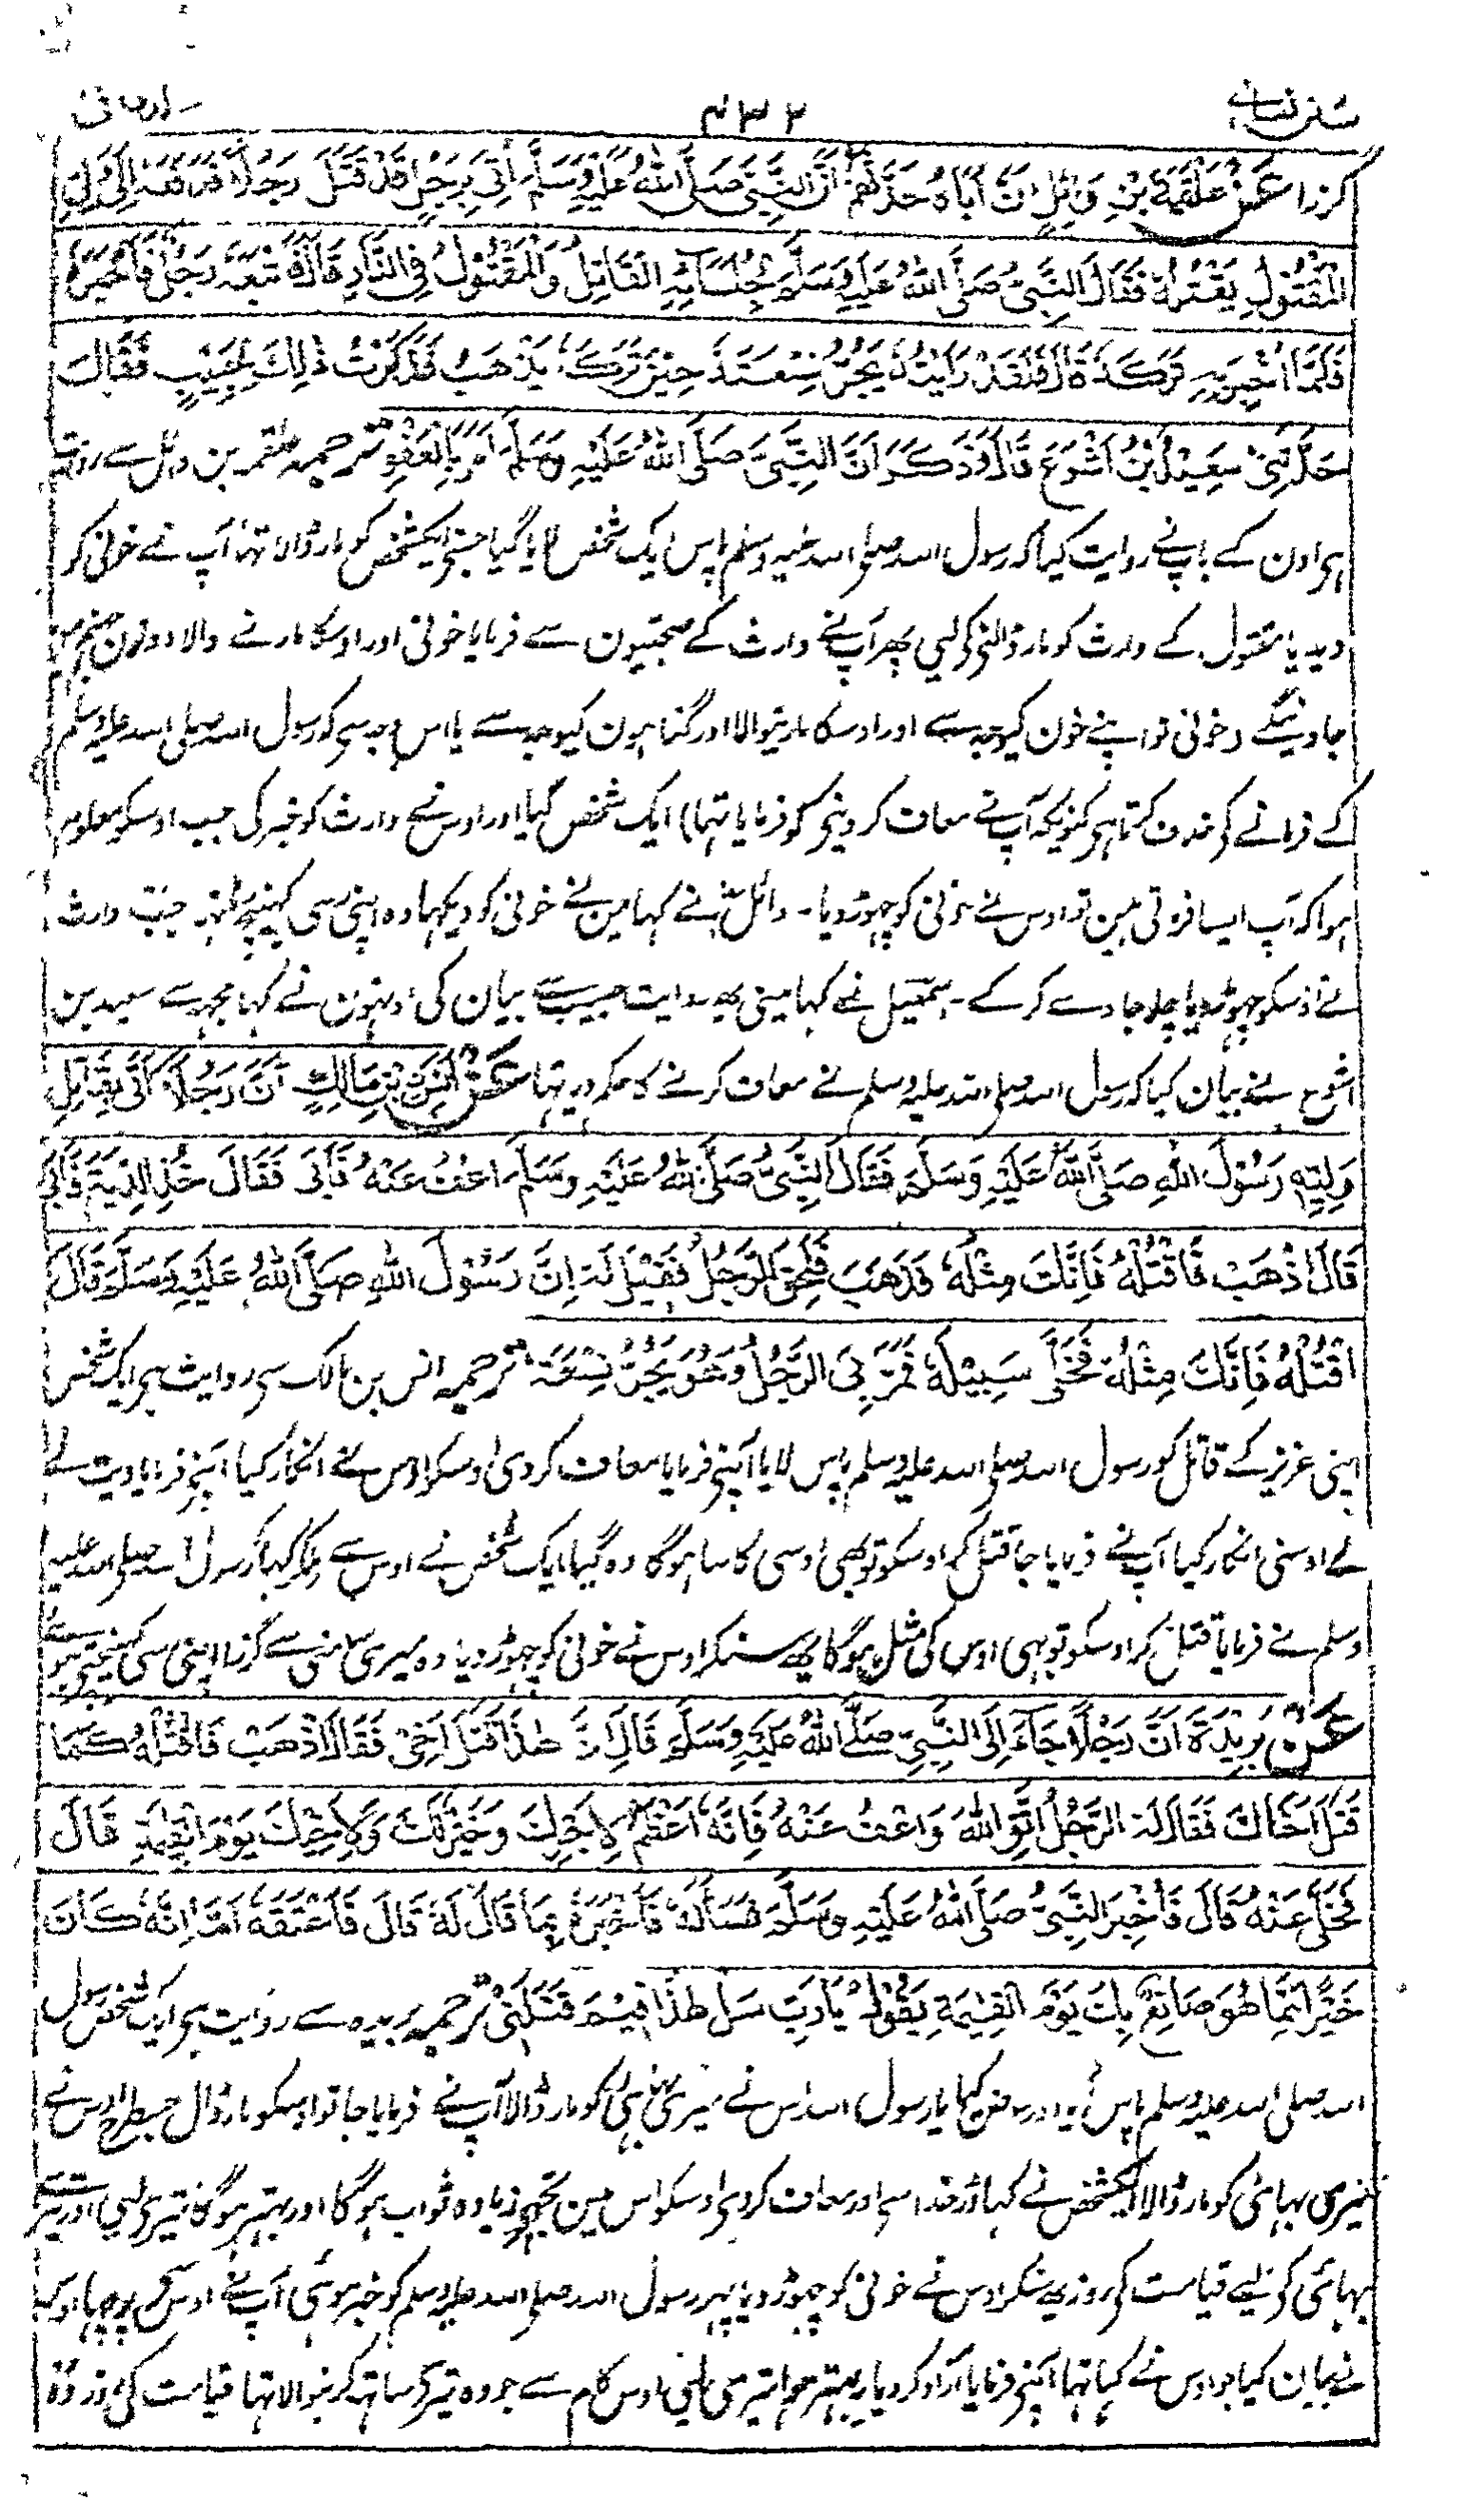 سنن نسائے ۴۳۲
گزرا عَنْ عَلْقَمَةَ بْنِ وَائِلٍ اَنَّ اَبَاهُ حَدَّثَهُمْ اَنَّ النَّبِيَّ صَلَّى اللهُ عَلَيْهِ وَسَلَّمَ اُتِيَ بِرَجُلٍ قَدْ قَتَلَ رَجُلًا فَدَفَعَهُ اِلٰى وَلِيِّ
الْمَقْتُوْلِ يَقْتُلُهُ فَقَالَ النَّبِيُّ صَلَّى اللهُ عَلَيْهِ وَسَلَّمَ لِجُلَسَآئِهِ الْقَاتِلُ وَالْمَقْتُوْلُ فِي النَّارِ قَالَ فَاتَّبَعَهُ رَجُلٌ فَاَخْبَرَهُ
فَلَمَّا اَخْبَرَهُ تَرَكَهُ قَالَ فَلَقَدْ رَاَيْتُهُ يَجُرُّ نِسْعَتَهُ حِيْنَ تَرَكَهُ يَذْهَبُ فَذَكَرْتُ ذٰلِكَ لِحَبِيْبٍ فَقَالَ
حَدَّثَنِيْ سَعِيْدُ بْنُ اَشْوَعَ قَالَ وَذَكَرَ اَنَّ النَّبِيَّ صَلَّى اللهُ عَلَيْهِ وَسَلَّمَ اَمَرَ بِالْعَفْوِ ترجمہ علقمہ بن وائل سے روایت
ہی اون کے باپ نے روایت کیا کہ رسول اللہ صلی اللہ علیہ وسلم پاس ایک شخص لایا گیا جسنے ایکشخص کو مار ڈالا تہا آپ نے خونی کو
دیدیا مقتول کے وارث کو مار ڈالنی کو لیی پھر آپنے وارث کے صحبتیون سے فرمایا خونی اور اوسکا مارنے والا دونون جہنم مین
جاوینگے (خونی تو اپنے خون کیوجہ سے اور اوسکا مارنیوالا اور گناہون کیوجہ سے یا اس وجہ سی کہ رسول اللہ صلی اللہ علیہ وسلم
کے فرمانے کی خلاف کرتا ہی کیونکہ آپ نے معاف کر دینی کو فرمایا تہا) ایک شخص گیا اور اوس نے وارث کو خبر کی جب اوسکو معلوم
ہوا کہ آپ ایسا فرماتی ہین تو اوس نے خونی کو چہوڑ دیا۔ وائل نے کہا مین نے خونی کو دیکہا وہ اپنی رسی کہینچ رہا تہا جب وارث
نے اوسکو چہوڑ دیا چلا جاوے کر کے۔ اسمعیل نے کہا مینی یہ روایت حبیب سے بیان کی اونہون نے کہا مجہہ سے سعید بن
اشوع نے بیان کیا کہ رسول اللہ صلی اللہ علیہ وسلم نے معاف کرنے کا حکم دیا تہا عَنْ اَنَسِ بْنِ مَالِكٍ اَنَّ رَجُلًا اَتٰى بِقَاتِلِ
وَلِيِّهٖ رَسُوْلَ اللهِ صَلَّى اللهُ عَلَيْهِ وَسَلَّمَ فَقَالَ النَّبِيُّ صَلَّى اللهُ عَلَيْهِ وَسَلَّمَ اعْفُ عَنْهُ فَاَبٰى فَقَالَ خُذِ الدِّيَةَ فَاَبٰى
قَالَ اذْهَبْ فَاقْتُلْهُ فَاِنَّكَ مِثْلُهٗ فَذَهَبَ فَلَحِقَ الرَّجُلُ فَقِيْلَ لَهٗ اِنَّ رَسُوْلَ اللهِ صَلَّى اللهُ عَلَيْهِ وَسَلَّمَ قَالَ
اقْتُلْهُ فَاِنَّكَ مِثْلُهٗ فَخَلّٰى سَبِيْلَهٗ فَمَرَّ بِيَ الرَّجُلُ وَهُوَ يَجُرُّ نِسْعَتَهٗ ترجمہ انس بن مالک سی روایت ہی ایک شخص
اپنی عزیز کے قاتل کو رسول اللہ صلی اللہ علیہ وسلم پاس لایا آپنے فرمایا معاف کردی اوسکو اوس نے انکار کیا آپنے فرمایا دیت لے
لے اوسنی انکار کیا آپ نے فرمایا جا قتل کر اوسکو تو بھی اوسی کا سا ہوگا وہ گیا ایک شخص نے اوس سے ملکر کہا کہ رسول اللہ صلی اللہ علیہ
وسلم نے فرمایا قتل کر اوسکو تو بہی اوس کی مثل ہوگا یہہ سنکر اوس نے خونی کو چہوڑ دیا وہ میری سامنی سے گزرا اپنی رسی کہینچتی ہوئے
عَنْ بُرَيْدَةَ اَنَّ رَجُلًا جَآءَ اِلَى النَّبِيِّ صَلَّى اللهُ عَلَيْهِ وَسَلَّمَ قَالَ اِنَّ هٰذَا قَتَلَ اَخِيْ فَقَالَ اذْهَبْ فَاقْتُلْهُ كَمَا
قَتَلَ اَخَاكَ فَقَالَ لَهُ الرَّجُلُ اتَّقِ اللهَ وَاعْفُ عَنْهُ فَاِنَّهٗ اَعْظَمُ لِاَجْرِكَ وَخَيْرٌ لَّكَ وَلِاَخِيْكَ يَوْمَ الْقِيٰمَةِ قَالَ
فَخَلّٰى عَنْهُ قَالَ فَاُخْبِرَ النَّبِيُّ صَلَّى اللهُ عَلَيْهِ وَسَلَّمَ فَسَاَلَهٗ فَاَخْبَرَهٗ بِمَا قَالَ لَهٗ قَالَ فَاَعْتَقَهٗ اَمَا اِنَّهٗ كَانَ
خَيْرًا مِّمَّا هُوَ صَانِعٌ بِكَ يَوْمَ الْقِيٰمَةِ يَقُوْلُ يَا رَبِّ سَلْ هٰذَا فِيْمَ قَتَلَنِيْ ترجمہ بریدہ سے روایت ہی ایک شخص رسول
اللہ صلی اللہ علیہ وسلم پاس آیا اور عرض کیا یا رسول اللہ اس نے میری بہائی کو مار ڈالا آپ نے فرمایا جا تو اوسکو مار ڈال جسطرح اوس نے
تیری بہائی کو مار ڈالا ایکشخص نے کہا ڈر خدا سی اور معاف کردی اوسکو اس مین تجہی زیادہ ثواب ہوگا اور بہتر ہوگا تیری لیی اور تیرے
بہائی کو لیے قیامت کی روز یہہ سنکر اوس نے خونی کو چہوڑ دیا پہر رسول اللہ صلی اللہ علیہ وسلم کو خبر ہوئی آپ نے اوس سی پوچہا اوس
نے بیان کیا جو اوس نے کہا تہا آپنے فرمایا آزاد کردیا یہ بہتر ہوا تیری لیی اوس کام سے جو وہ تیری ساتہہ کرنیوالا تہا قیامت کی روز وہ